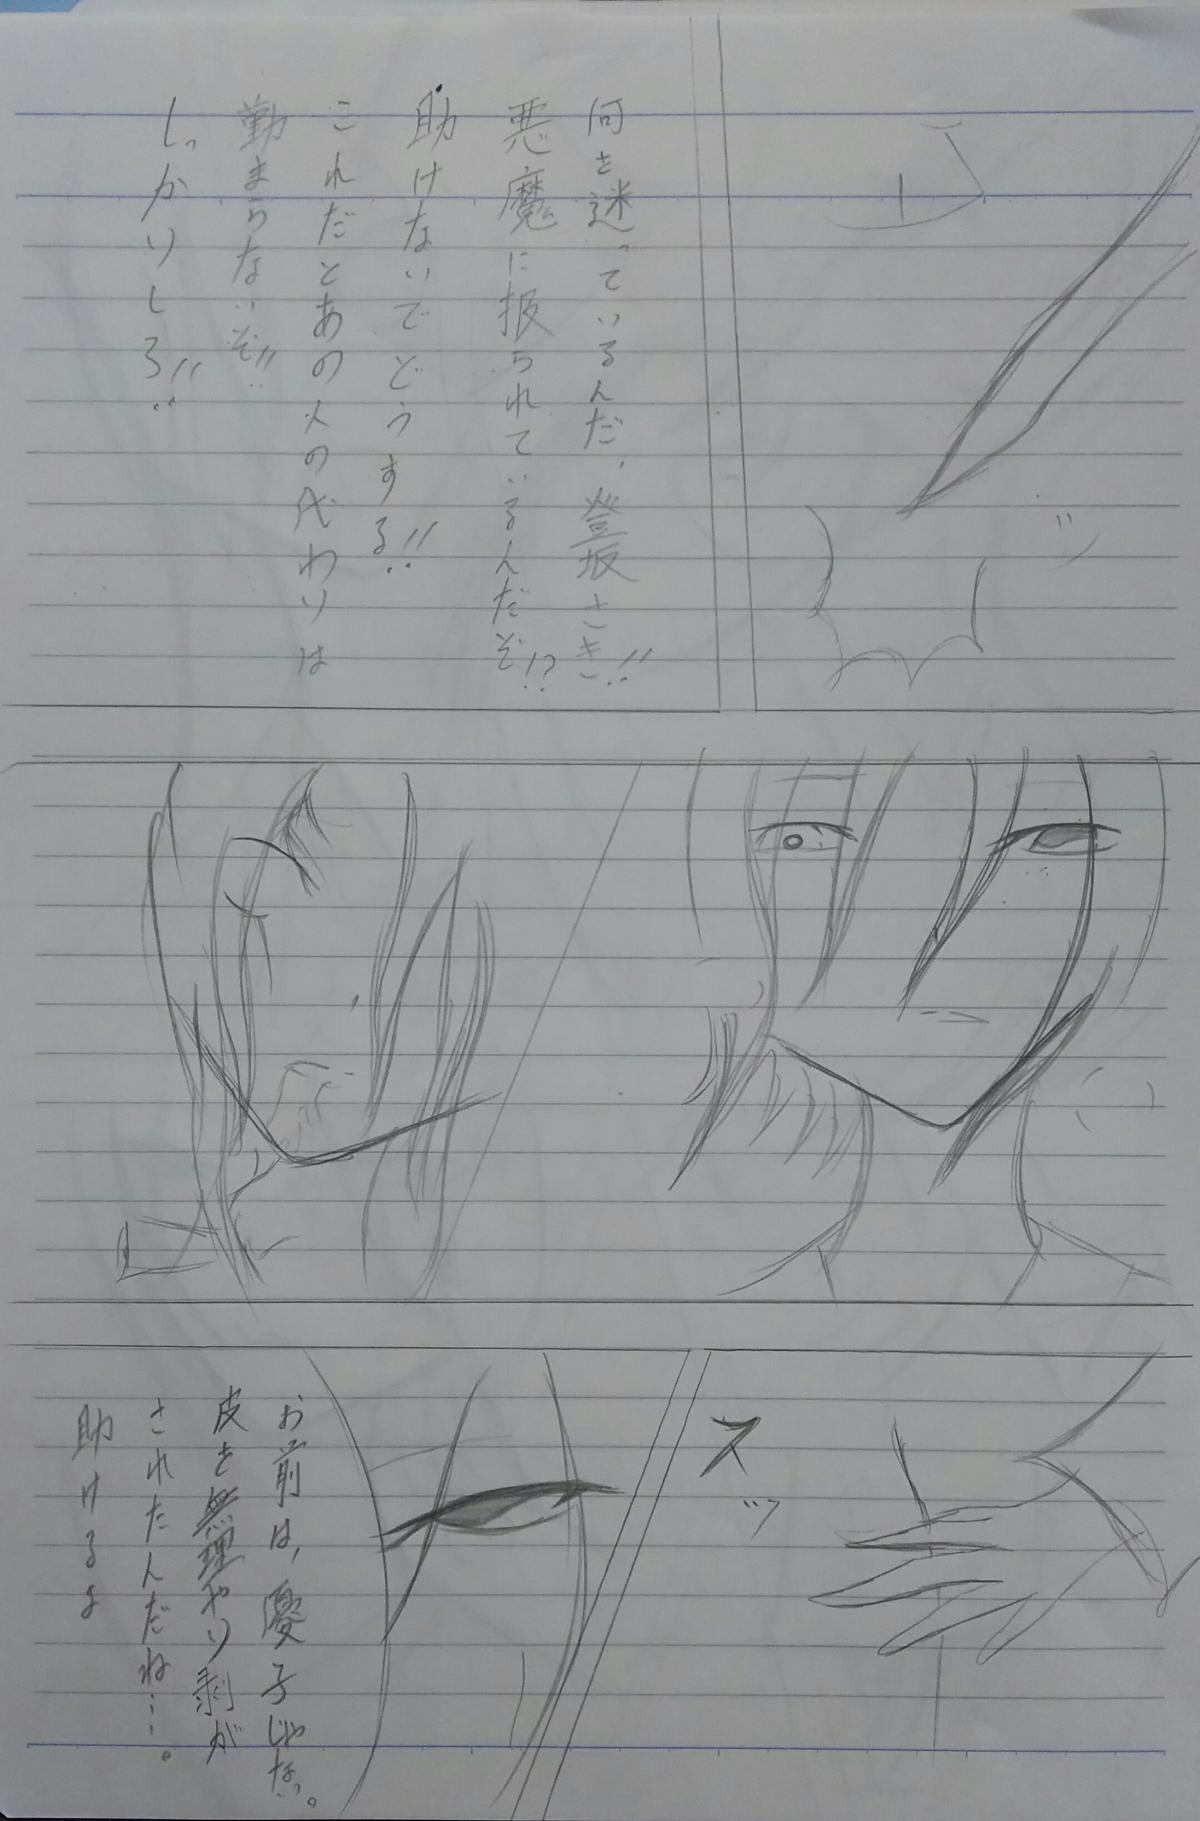 ッ
何を迷っているんだ、登坂さき!!
悪魔に扱られているんだぞ!?
助けないでどうする!!
これだとあの人の代わりは
勤まらないぞ!!
しっかりしろ!!
スッ
お前は、優子じゃな。
皮を無理やり剥が
されたんだね…。
助けるよ